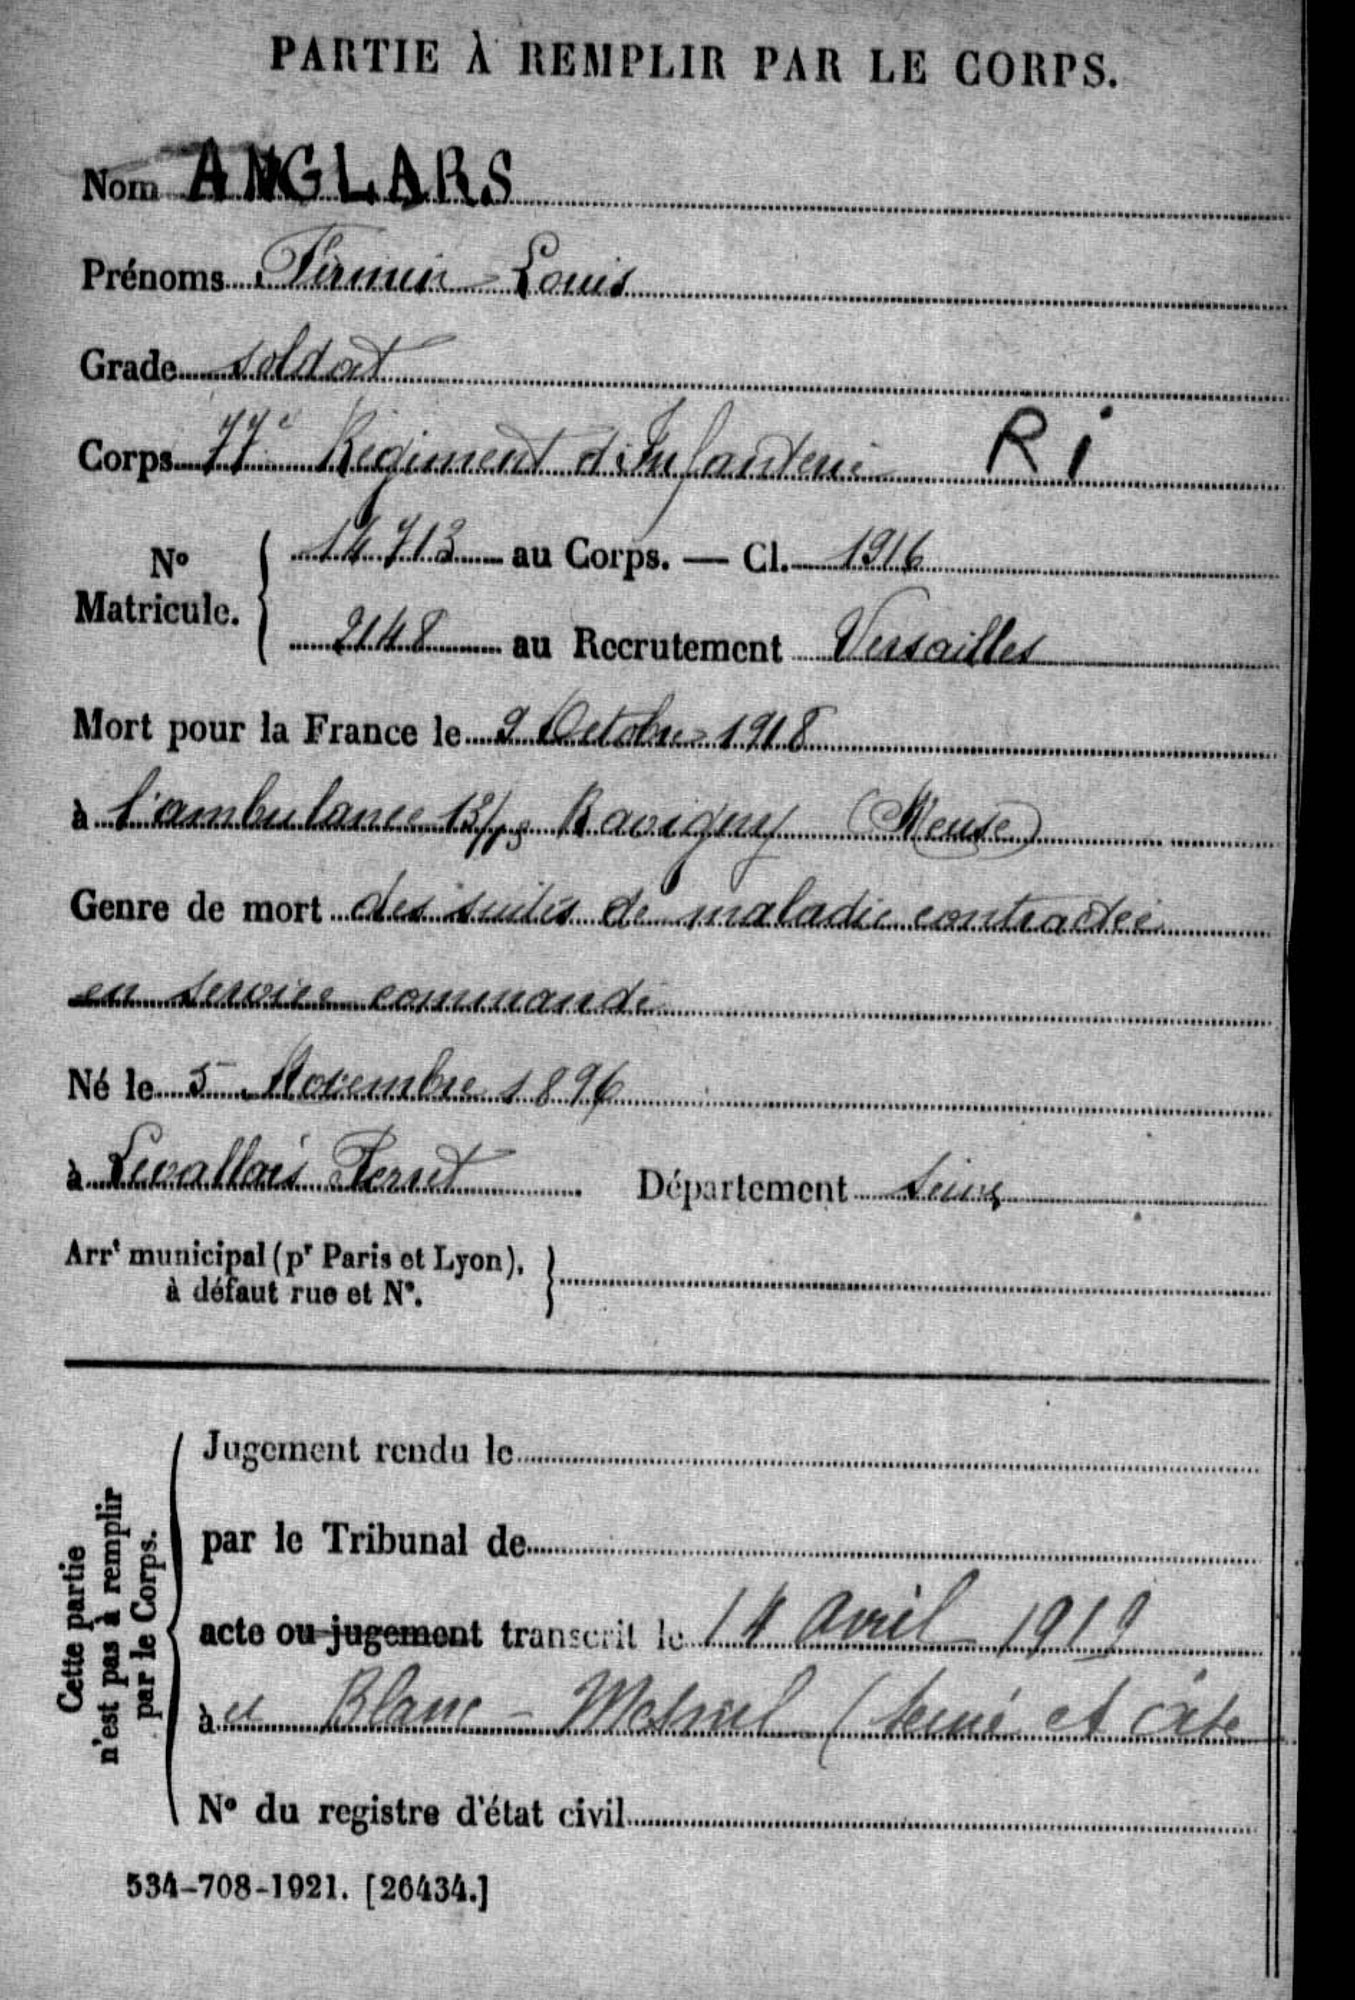 PARTIE À REMPLIR PAR LE CORPS.
Nom ANGLARS
Prénoms Firmin-Louis
Grade soldat
Corps 77e Régiment d'Infanterie RI
No Matricule. 14713 au Corps. — Cl. 1916
2148 au Recrutement Versailles
Mort pour la France le 9 Octobre 1918
à l'ambulance 13/ Ravigny (Meuse)
Genre de mort des suites de maladie contractée
en service commandé
Né le 5 Novembre 1896
à Levallois Perret Département Seine
Arrt municipal (pr Paris et Lyon),
à défaut rue et No.
Cette partie
n'est pas à remplir
par le Corps.
Jugement rendu le
par le Tribunal de
acte ou jugement transcrit le 14 avril 1919
à u Blanc-Mesnil (Seine et Oise
No du registre d'état civil
534-708-1921. [26434.]